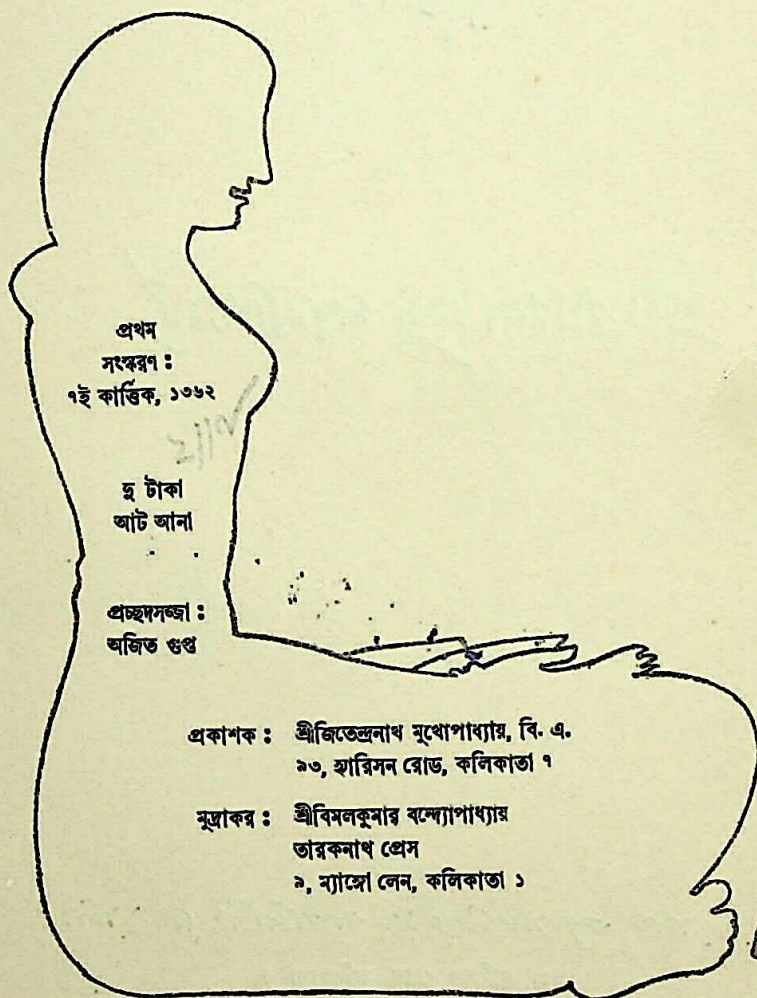 প্রথম
সংস্করণ :
৭ই কার্ত্তিক, ১৩৬২
দু টাকা
আট আনা
প্রচ্ছদসজ্জা :
অজিত গুপ্ত
প্রকাশক : শ্রীজিতেন্দ্রনাথ মুখোপাধ্যায়, বি. এ.
৯৩, হ্যারিসন রোড, কলিকাতা ৭
মুদ্রাকর : শ্রীবিমলকুমার বন্দ্যোপাধ্যায়
তারকনাথ প্রেস
৯, ম্যাঙ্গো লেন, কলিকাতা ১